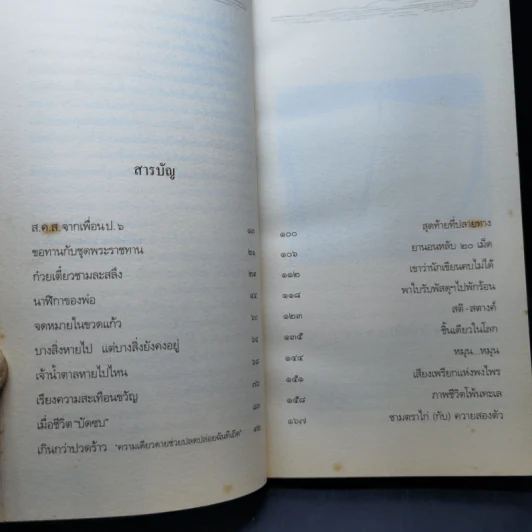 สารบัญ
ส.ค.ส.จากเพื่อน ป.๖ ๑๐
ขอทานกับชุดพระราชทาน ๒๑
ก๋วยเตี๋ยวชามละสลึง
นาฬิกาของพ่อ
จดหมายในขวดแก้ว
บางสิ่งหายไป แต่บางสิ่งยังคงอยู่
เจ้าน้ำตาลหายไปไหน
เรียงความสะเทือนขวัญ ๗๖
เมื่อชีวิต "บัดซบ"
เกินกว่าปวดร้าว "ความเดียวดายช่วยปลดปล่อยฉันทีเถิด"
๑๐๐ สุดท้ายที่ปลายทาง
๑๐๖ ยานอนหลับ ๒๐ เม็ด
๑๑๒ เขาว่านักเขียนคบไม่ได้
๑๑๘ พาใบรับพัสดุฯไปพักร้อน
๑๒๓ สติ-สตางค์
๑๓๕ ชิ้นเดียวในโลก
๑๔๔ หมุน...หมุน
๑๕๑ เสียงเพรียกแห่งพงไพร
๑๕๘ ภาพชีวิตโพ้นทะเล
๑๖๗ ชามตราไก่ (กับ) ควายสองตัว